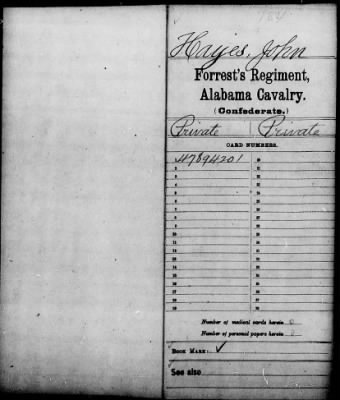 Hayes, John
Forrest's Regiment,
Alabama Cavalry.
(Confederate.)
Private | Private
CARD NUMBERS.
1 47894201 20
2 21
3 22
4 23
5 24
6 25
7 26
8 27
9 28
10 29
11 30
12 31
13 32
14 33
15 34
16 35
17 36
18 37
19 38
Number of medical cards herein 0
Number of personal papers herein 0
BOOK MARK: ✓
See also